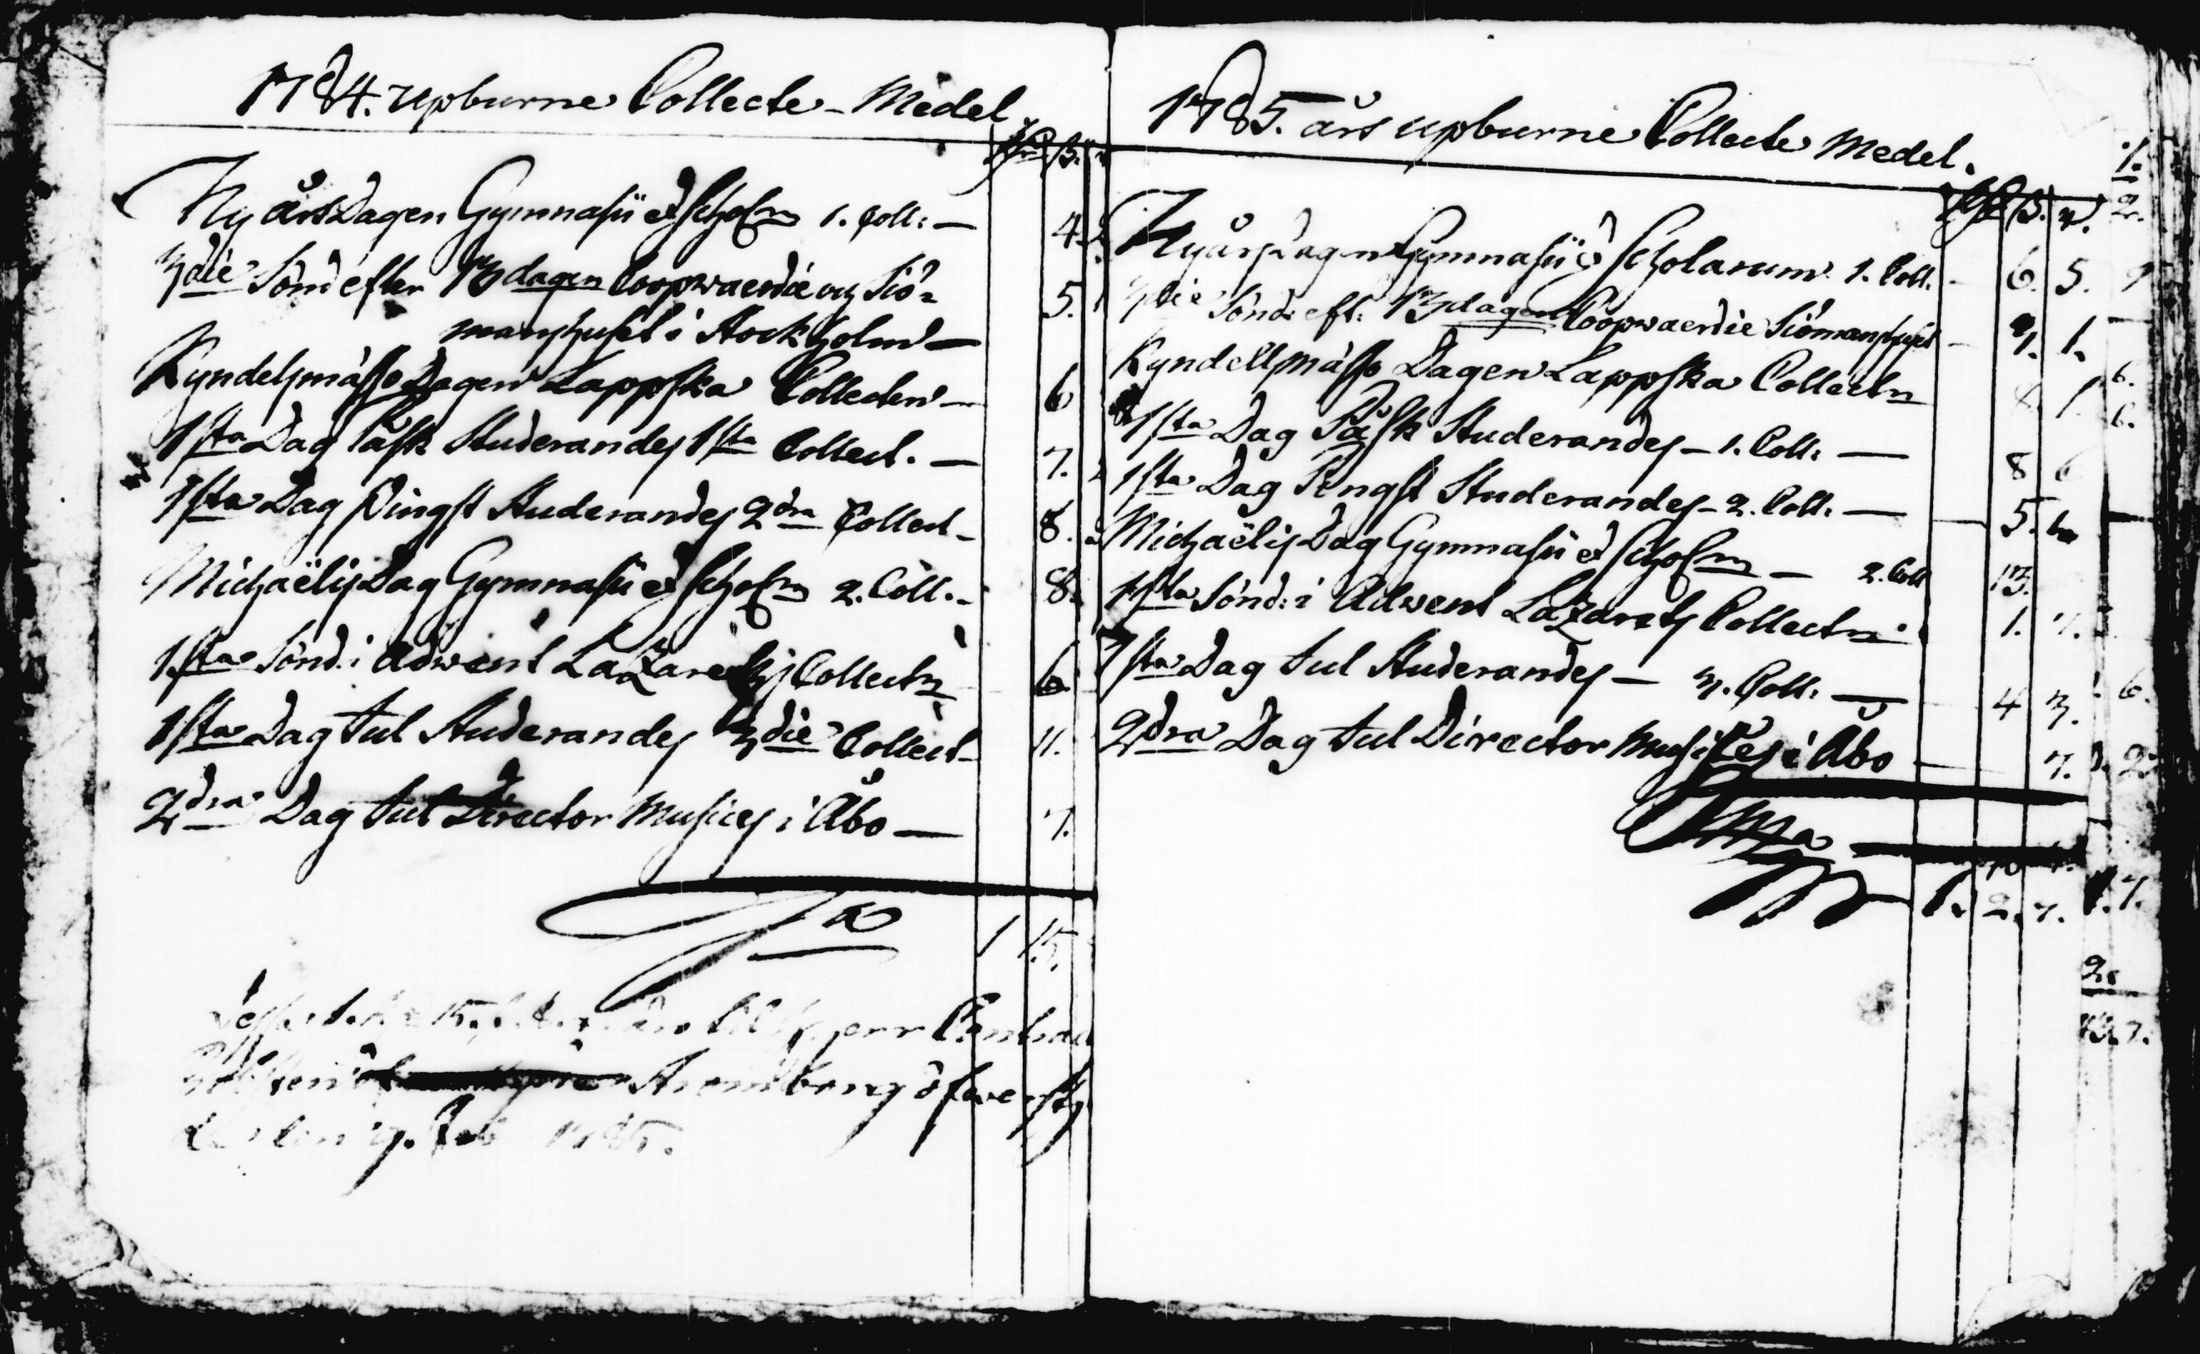 1784. upburne Collecte-Medel
Ny årsdagen Gymnasii et Schol:m 1. Coll: — 4.
3die Sönd efter 13dagen Coopvaerdie og Siö- 5.
manshuset i Stockholm —
Kyndelsmässo Dagen Lappska Collecten — 6
1sta Dag Påsk Studerandes 1sta Collect. — 7.
1sta Dag Pingst Studerandes 2dra Collect — 8.
Michaëlis Dag Gymnasii et Schol:m 2. Coll. — 8.
1sta Sönd. i Adwent Lazaretts Collect:n 6
1sta Dag Jul Studerandes 3die Collect — 11.
2dra Dag Jul Director Musices i Åbo — 7.
S:a 1 15.
Herr
Aremberg öfwer
den Feb 1785.
1785. års upburne Collecte Medel.
Nyårsdagen Gymnasii et Scholarum 1. Coll. — 6. 5.
3die Sönd: eft: 13dagen Coopvaerdie Siömanshuset — 9. 1.
Kyndelsmässo Dagen Lappska Collect:n 8 1
1sta Dag Påsk Studerandes — 1. Coll: — 8 6
1sta Dag Pingst Studerandes — 2. Coll. — 5.
Michaëlis Dag Gymnasii et Schol:m — 2. Coll 13.
1sta Sönd: i Adwent Lazaretts Collect:n 1. 7.
1sta Dag Jul Studerandes — 3. Coll: — 4 3.
2dra Dag Jul Director Musices i Åbo — 7.
Summa
1. 2. 7.